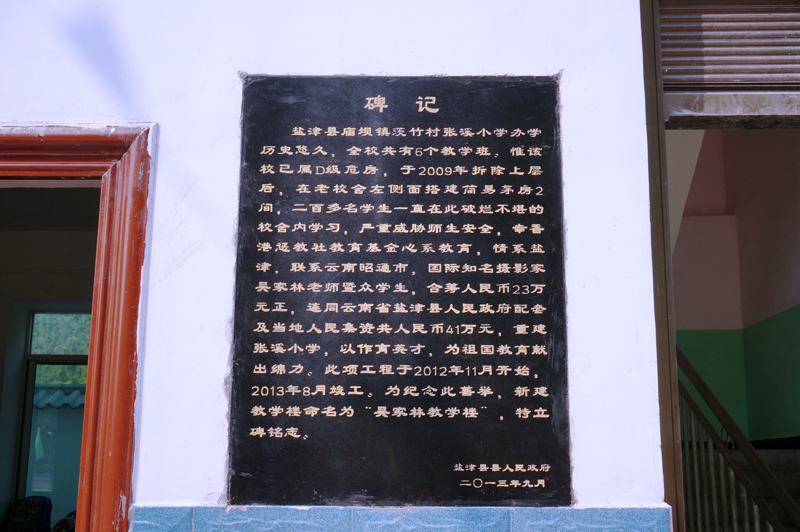 碑记
盐津县庙坝镇茨竹村张溪小学办学
历史悠久，全校共有6个教学班。惟该
校已属D级危房，于2009年拆除上层
后，在老校舍左侧面搭建简易茅房2
间，二百多名学生一直在此破烂不堪的
校舍内学习，严重威胁师生安全，幸香
港慈教社教育基金心系教育，情系盐
津，联系云南昭通市，国际知名摄影家
吴家林老师暨众学生，合筹人民币23万
元正，连同云南省盐津县人民政府配套
及当地人民集资共人民币41万元，重建
张溪小学，以作育英才，为祖国教育献
出绵力。此项工程于2012年11月开始，
2013年8月竣工。为纪念此善举，新建
教学楼命名为“吴家林教学楼”，特立
碑铭志。
盐津县县人民政府
二〇一三年九月